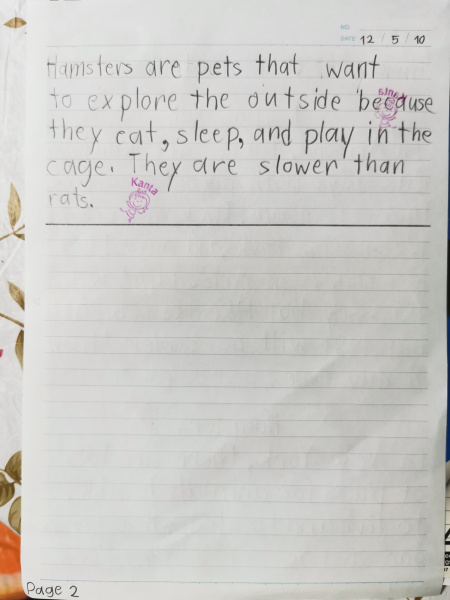 NO.
DATE 12 / 5 / 10
Hamsters are pets that want
to explore the outside because
they eat, sleep, and play in the
cage. They are slower than
rats.
Kanta
Page 2